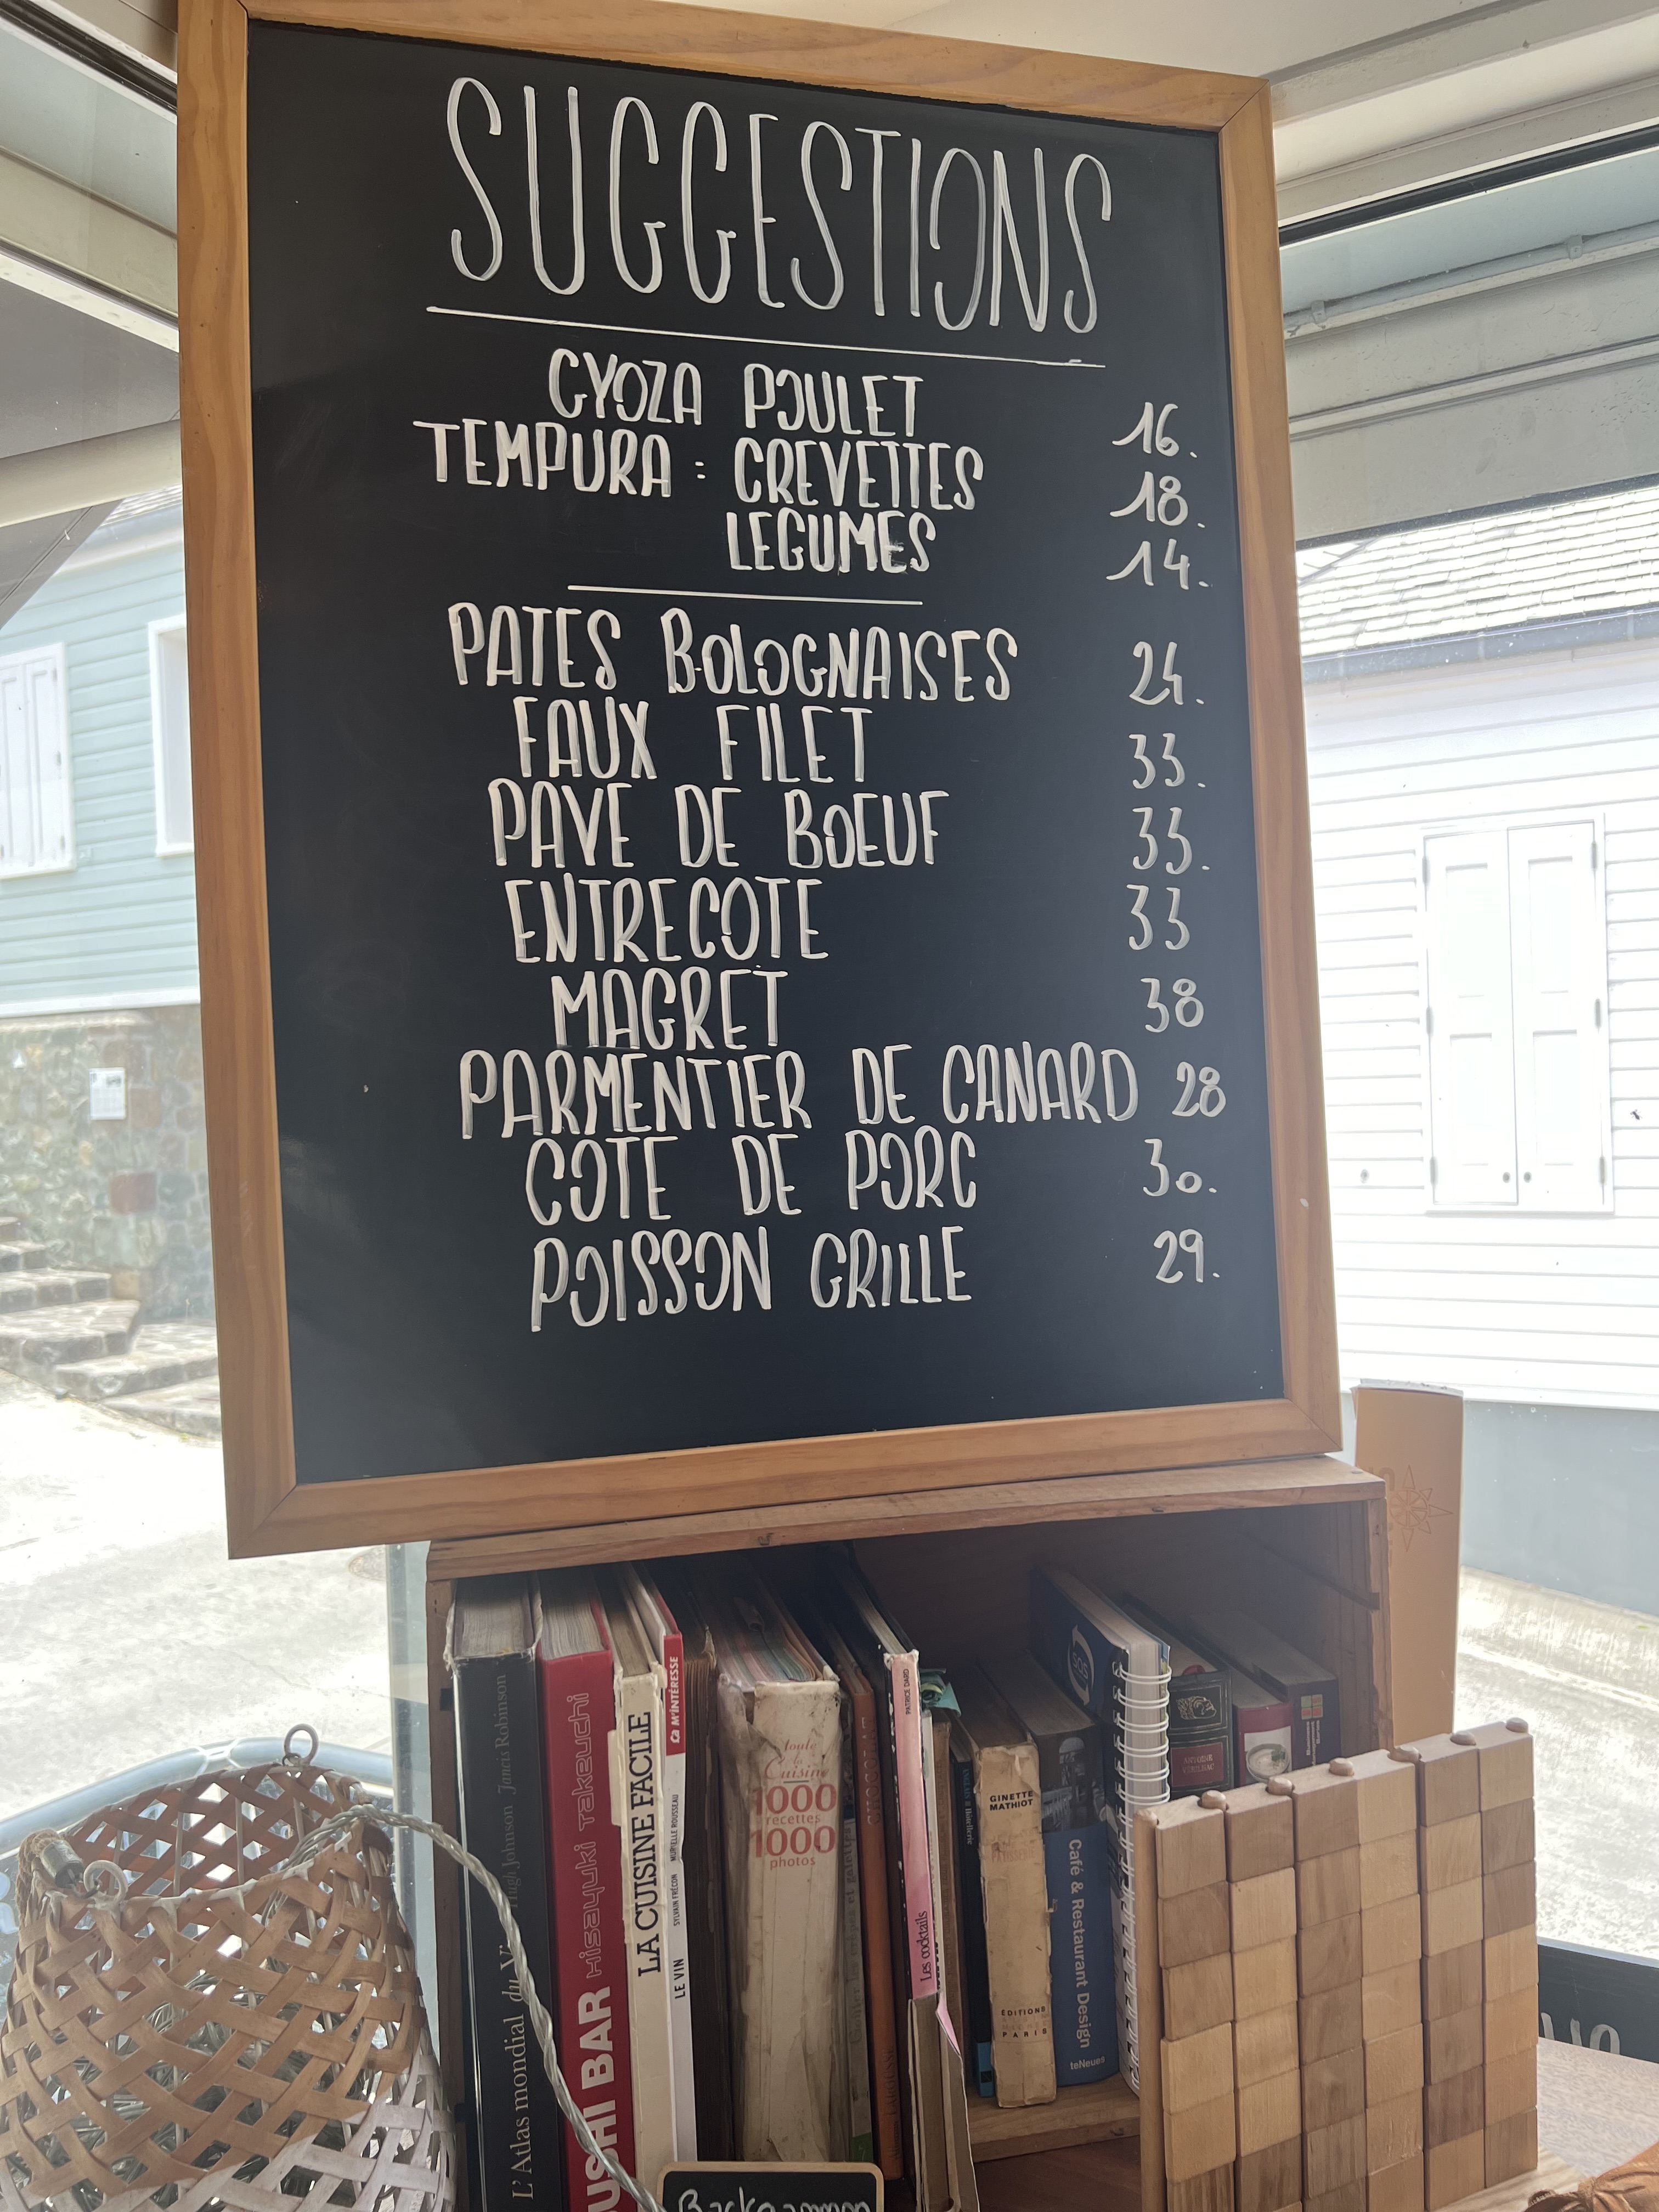 SUGGESTIONS
GYOZA POULET 16.
TEMPURA : CREVETTES 18.
LEGUMES 14.
PATES BOLOGNAISES 24.
FAUX FILET 33.
PAVE DE BOEUF 33.
ENTRECOTE 33
MAGRET 38
PARMENTIER DE CANARD 28
COTE DE PORC 30.
POISSON GRILLE 29.
L'Atlas mondial du Hugh Johnson Jancis Robinson
SUSHI BAR Hisayuki Takeuchi
LA CUISINE FACILE
LE VIN SYLVAIN FRÉCON MURIELLE ROUSSEAU
Ça M'INTÉRESSE
Toute
la
Cuisine
1000
recettes
1000
photos
Les cocktails PATRICE DARD
GINETTE
MATHIOT
ÉDITIONS
PARIS
Café & Restaurant Design
teNeues
SOS
Backgammon